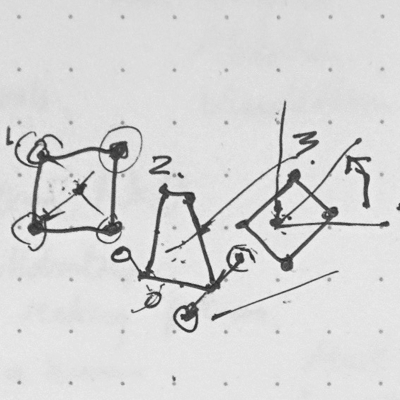 1
2.
3.